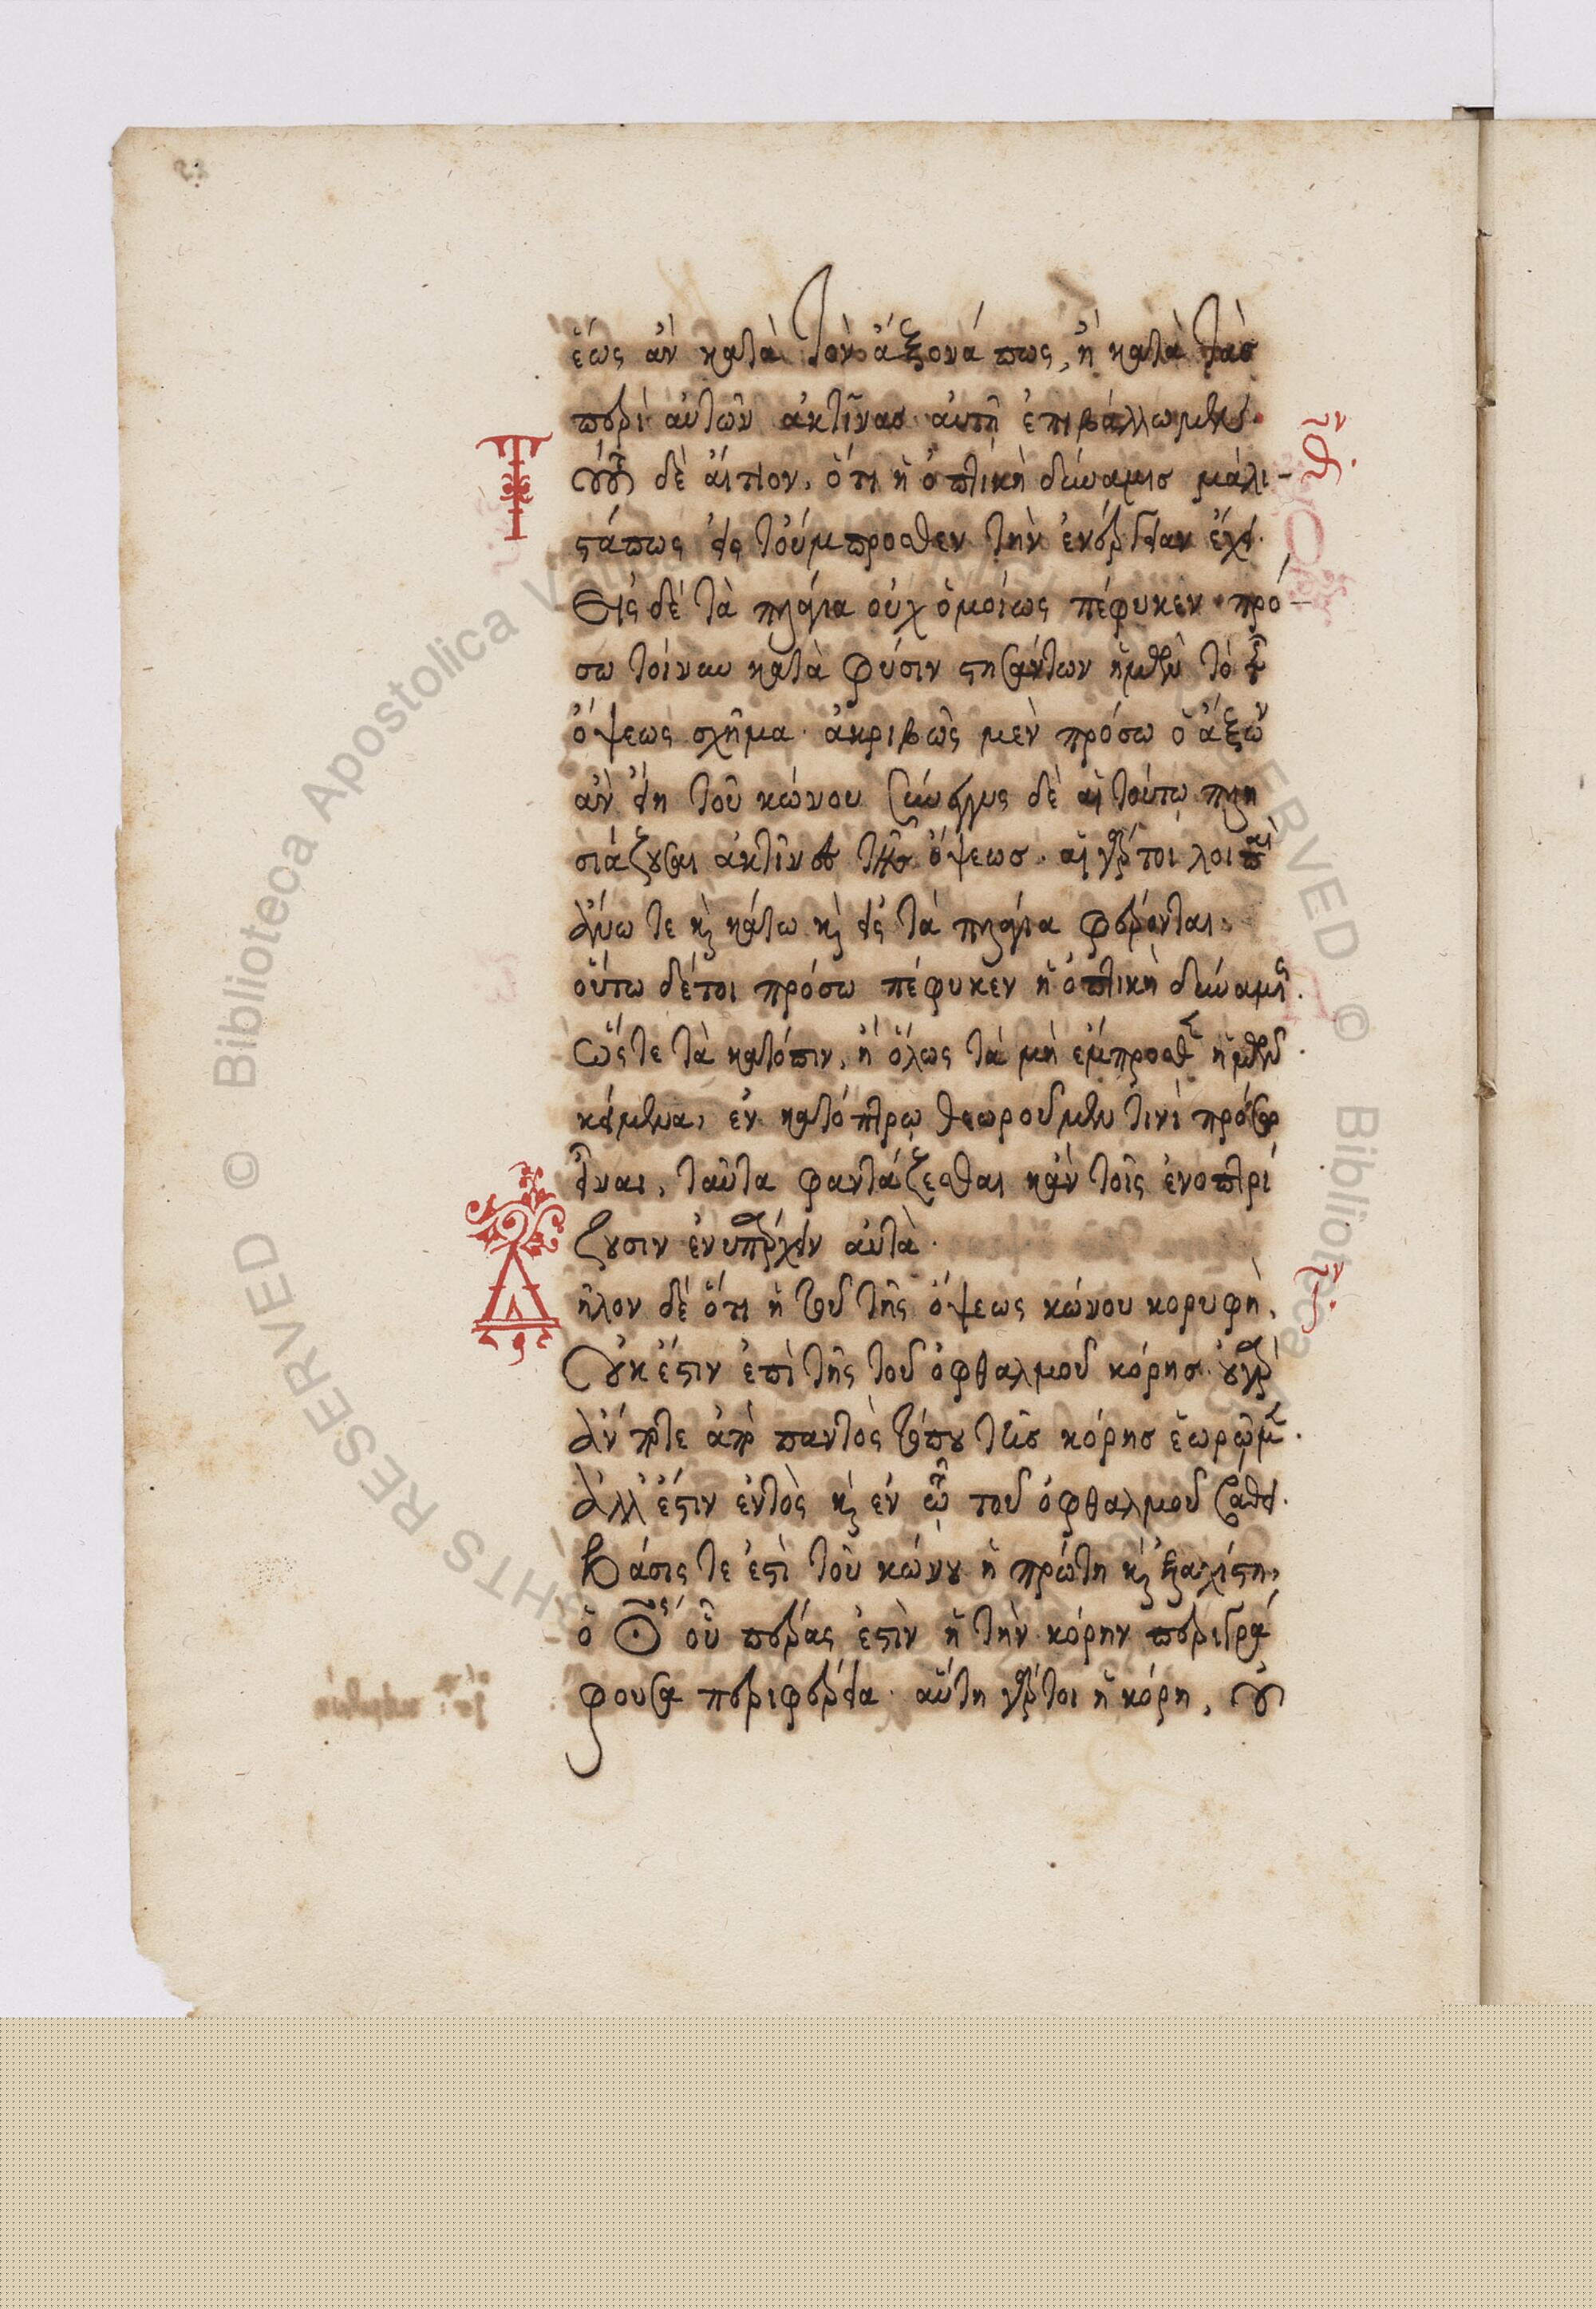 ἕως ἂν κατὰ τὸν ἄξονά πως, ἢ κατὰ τὰς
περὶ αὐτὸν ἀκτῖνας αὐτῇ ἐπιβάλλωμεν.
Τούτου δὲ αἴτιον, ὅτι ἡ ὀπτικὴ δύναμις μάλι-
στάπως εἰς τοὔμπροσθεν τὴν ἐνέργειαν ἔχει.
Εἰς δὲ τὰ πλάγια οὐχ ὁμοίως πέφυκεν. πρό-
σω τοίνυν κατὰ φύσιν στησάντων ἡμῶν τὸ τῆς
ὄψεως σχῆμα. ἀκριβῶς μὲν πρόσω ὁ ἄξων
ἂν εἴη τοῦ κώνου σύνεγγυς δὲ αἱ τούτῳ πλη
σιάζουσαι ἀκτῖνες τῆς ὄψεως. αἱ γάρ τοι λοιπαὶ
ἄνω τε καὶ κάτω καὶ εἰς τὰ πλάγια φέρονται.
οὕτω δέ τοι πρόσω πέφυκεν ἡ ὀπτικὴ δύναμις.
Ὥστε τὰ κατόπιν, ἢ ὅλως τὰ μὴ ἔμπροσθεν ἡμῶν
κείμενα, ἐν κατόπτρῳ θεωρούμενά τινι πρόσω
εἶναι, ταῦτα φαντάζεσθαι κἀν τοῖς ἐνοπτρί
ζουσιν ἐνυπάρχειν αὐτά.
Δῆλον δὲ ὅτι ἡ τοῦ τῆς ὄψεως κώνου κορυφὴ,
Οὐκ ἔστιν ἐπὶ τῆς τοῦ ὀφθαλμοῦ κόρης. οὐ γὰρ
ἄν ποτε ἀπὸ παντὸς τόπου τῆς κόρης ἑωρῶμεν.
ἀλλ' ἔστιν ἐντὸς καὶ ἐν τῷ τοῦ ὀφθαλμοῦ βάθει.
Βάσις τε ἐστὶ τοῦ κώνου ἡ πρώτη καὶ ἐλαχίστη,
ὁ κύκλος οὗ πέρας ἐστὶν ἡ τὴν κόρην περιγρά
φουσα περιφέρεια. αὕτη γάρ τοι ἡ κόρη, οὐ